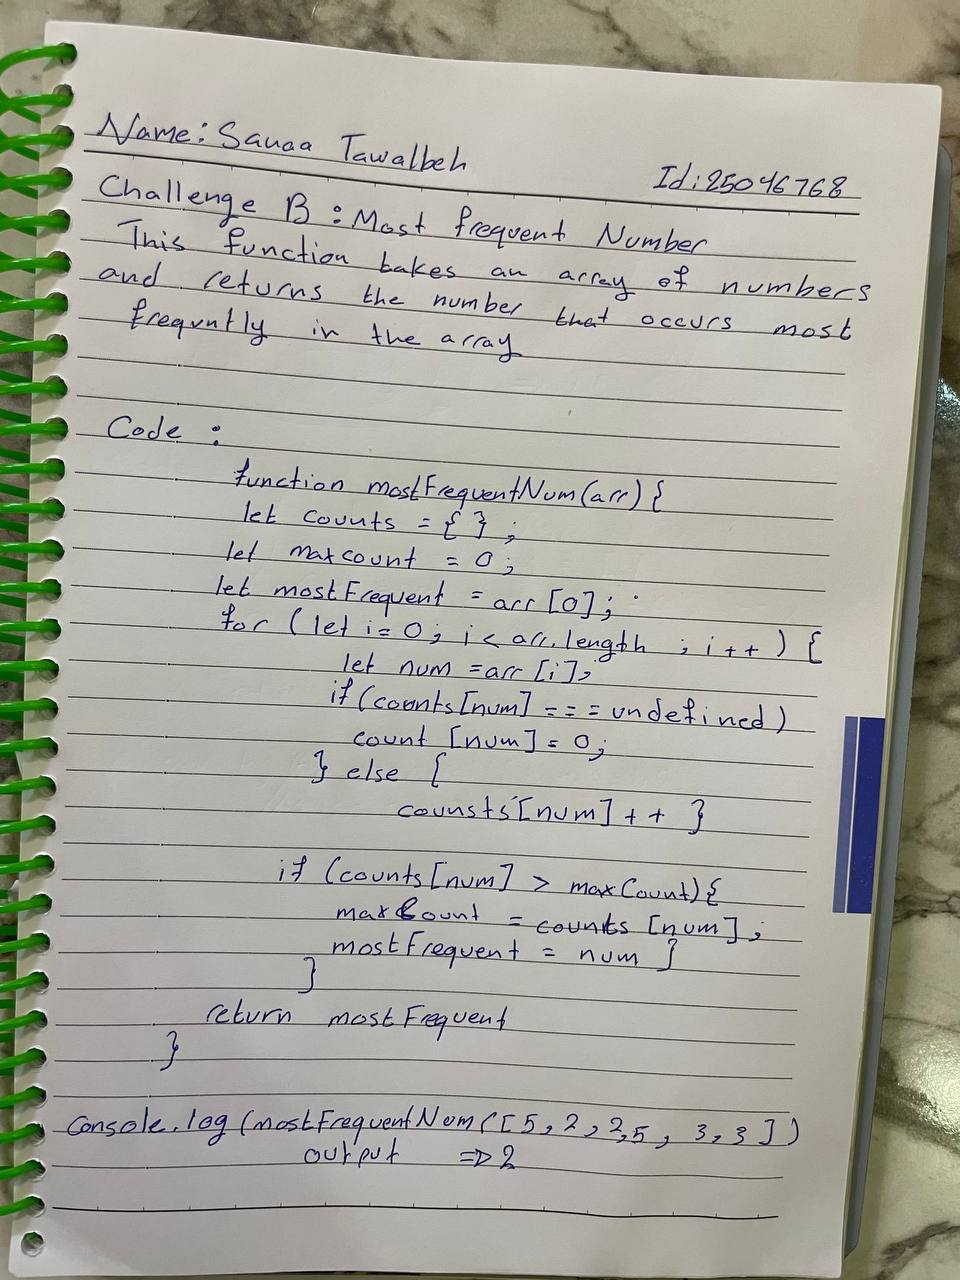 Name: Sanaa Tawalbeh Id: 25046768
Challenge B : Most frequent Number
This function takes an array of numbers
and returns the number that occurs most
frequntly in the array
Code :
function mostFrequentNum(arr) {
let counts = { } ;
let maxcount = 0 ;
let mostFrequent = arr [0] ;
for ( let i = 0 ; i < arr.length ; i + + ) {
let num = arr [i] ;
if (counts [num] = = = undefined )
count [num] = 0 ;
} else {
counsts [num] + + }
if (counts [num] > maxCount) {
maxCount = counts [num] ;
mostFrequent = num }
}
return mostFrequent
}
Console.log (mostFrequentNum ( [ 5 , 2 , 2 , 5 , 3 , 3 ] )
output => 2